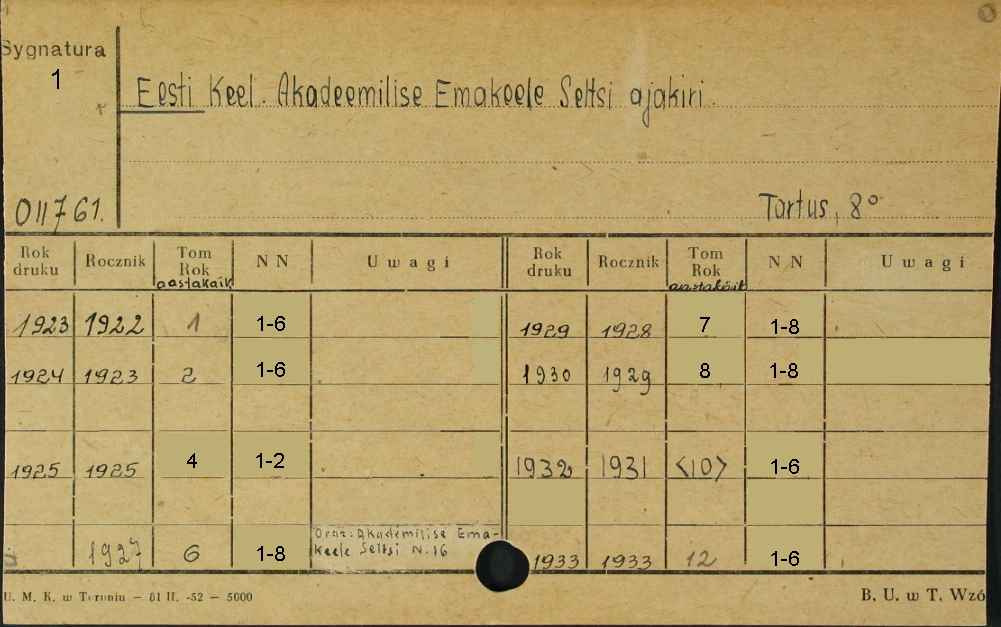 Sygnatura
1
Eesti Keel. Akadeemilise Emakeele Seltsi ajakiri.
011761.
Tartus, 8°
Rok druku Rocznik Tom Rok aastakäik NN Uwagi Rok druku Rocznik Tom Rok aastakäik NN Uwagi
1923 1922 1 1-6 1929 1928 7 1-8
1924 1923 2 1-6 1930 1929 8 1-8
1925 1925 4 1-2 1932 1931 <10> 1-6
1927 6 1-8 Oraz: Akadeemilise Ema-
keele Seltsi N. 16 1933 1933 12 1-6
U. M. K. w Toruniu — 81 II. -52 — 5000 B. U. w T. Wzó